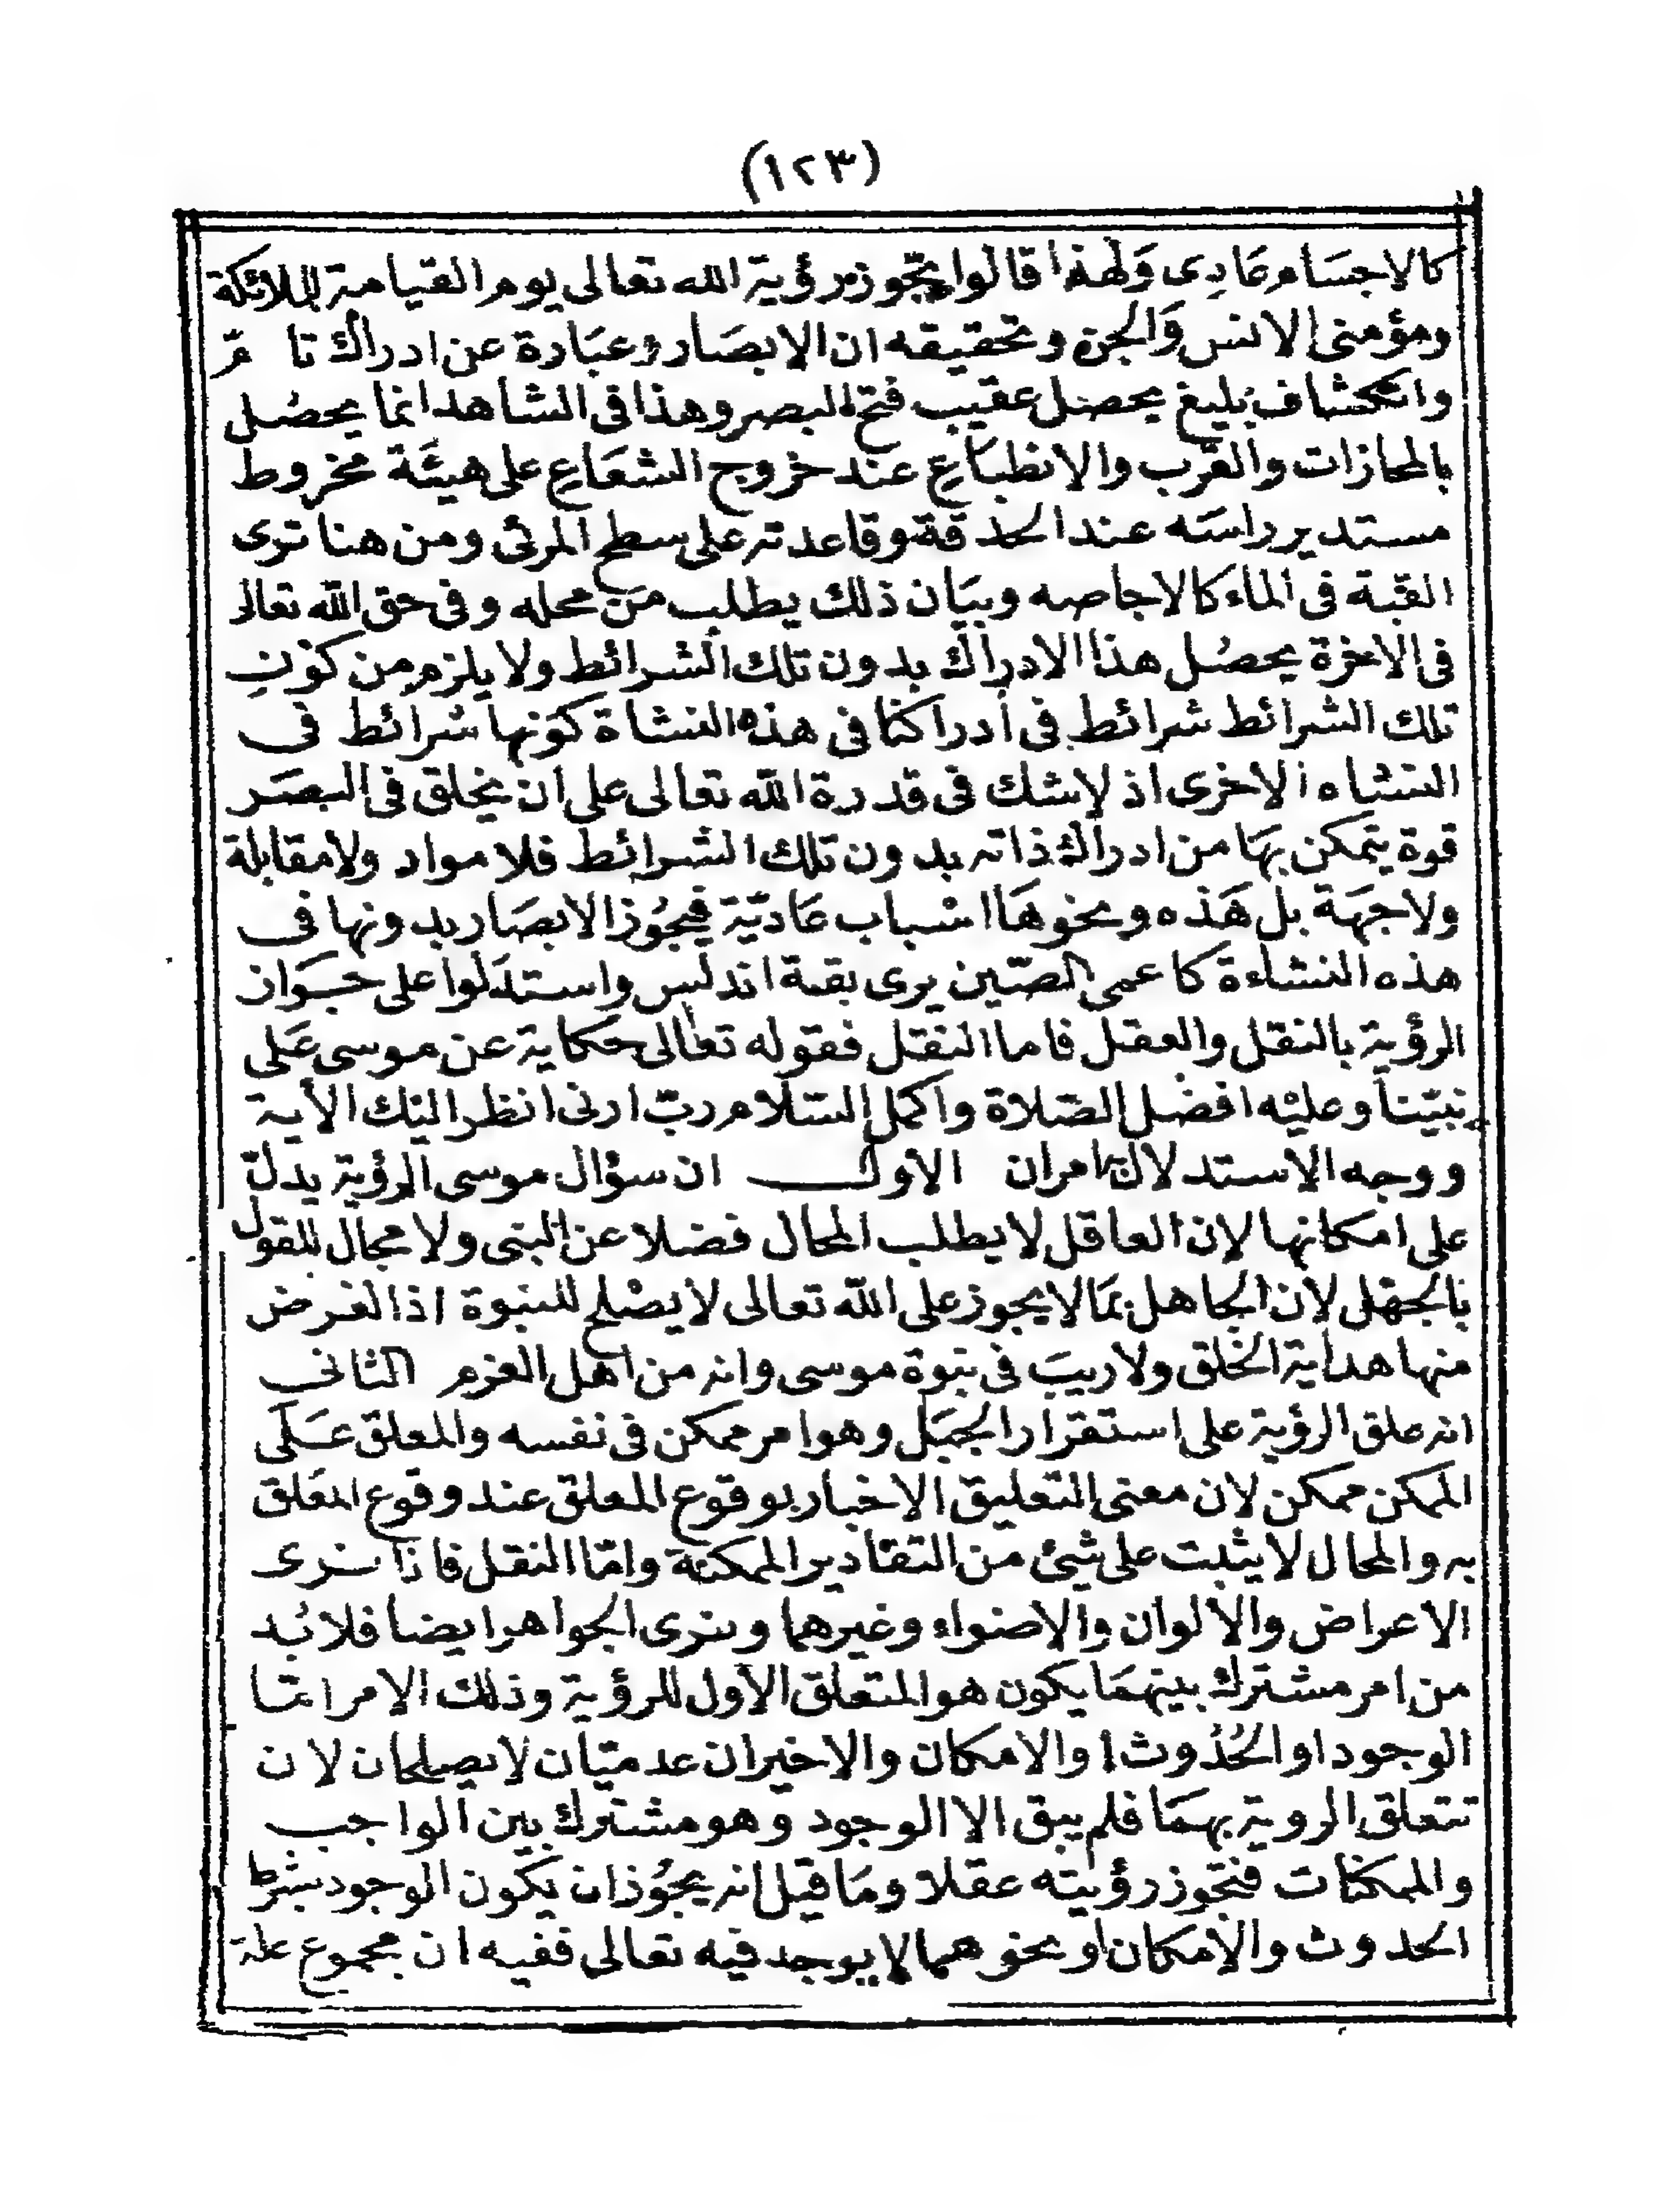 (١٢٣)
كالاجسَام عَادِى وَلهٰذا قالوا يجوز رؤية الله تعالى يوم القيامة للملائكة
ومؤمنى الانس وَالجن وتحقيقه ان الابصَار عبَارة عن ادراك تا مّ
وانكشاف بليغ يحصل عقيب فتح البصر وهذا فى الشاهد انما يحصُل
بالمحازات والقرب والانطباع عند خروج الشعَاع على هيئة مخروط
مستدير راسَه عند الحدقة وقاعدته على سطح المرئى ومن هنا ترى
القبة فى الماء كالاجاصه وبيَان ذلك يطلب من محله وفى حق الله تعالى
فى الاخرة يحصُل هذا الادراك بدون تلك الشرائط ولا يلزم من كونِ
تلك الشرائط شرائط فى أدراكنا فى هذه النشاة كوَنها شرائط فى
النشاه الاخرى اذ لاشك فى قدرة الله تعالى على ان يخلق فى البصَر
قوة يتمكن بهَا من ادراك ذاته بدون تلك الشرائط فلا مواد ولا مقابلة
ولا جهَة بل هَذه ونحوهَا اسباب عَاديّة فيجُوز الابصَار بدونها فى
هذه النشاءة كاعمى الصّين يرى بقة اندلس واستدَلوا على جَواز
الرؤية بالنقل والعقل فاما النقل فقوله تعالى حكاية عن موسى عَلى
نبيّنا وعليْه افضل الصّلاة واكمل السّلام ربّ ارنى انظر اليْك الأية
ووجه الاستدلال امران الاول ان سؤال موسى الرؤية يدلّ
على امكانها لان العاقل لا يطلب المحال فضلا عن النبى ولا مجال للقول
بالجهْل لان الجاهل بمَا لا يجوز على الله تعالى لا يصْلح للنبوة اذا لغرض
منها هداية الخلق ولا ريبَ فى نبوة موسى وانه من اهل العزم الثانى
انه علق الرؤية على استقرار الجبَل وهو امر ممكن فى نفسه والمعلق عَلى
الممكن ممكن لان معنى التعليق الاخبار بوقوع المعلق عند وقوع المعَلق
به والمحال لا يثبت على شئ من التقادير الممكنة وامّا النقل فاذا نرى
الاعراض والالوان والاضواء وغيرهما ونرى الجواهر ايضا فلا بُد
من امر مشترك بينهمَا يكون هو المتعلق الأول للرؤية وذلك الامر امّا
الوجود او الحُدُوث او الامكان والاخيران عدميّان لا يصلحان لان
تتعلق الروية بهمَا فلم يبق الا الوجود وهو مشترك بين الواجب
والممكنات فتجوز رؤيته عقلا ومَا قيل انه يجُوز ان يكون الوجود بشرط
الحدوث والامكان او نحوهما لا يوجد فيه تعالى ففيه ان مجموع علة